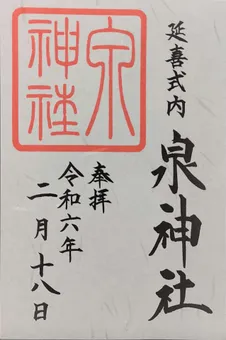 延喜式内
泉神社
泉神社
奉拝
令和六年
二月十八日